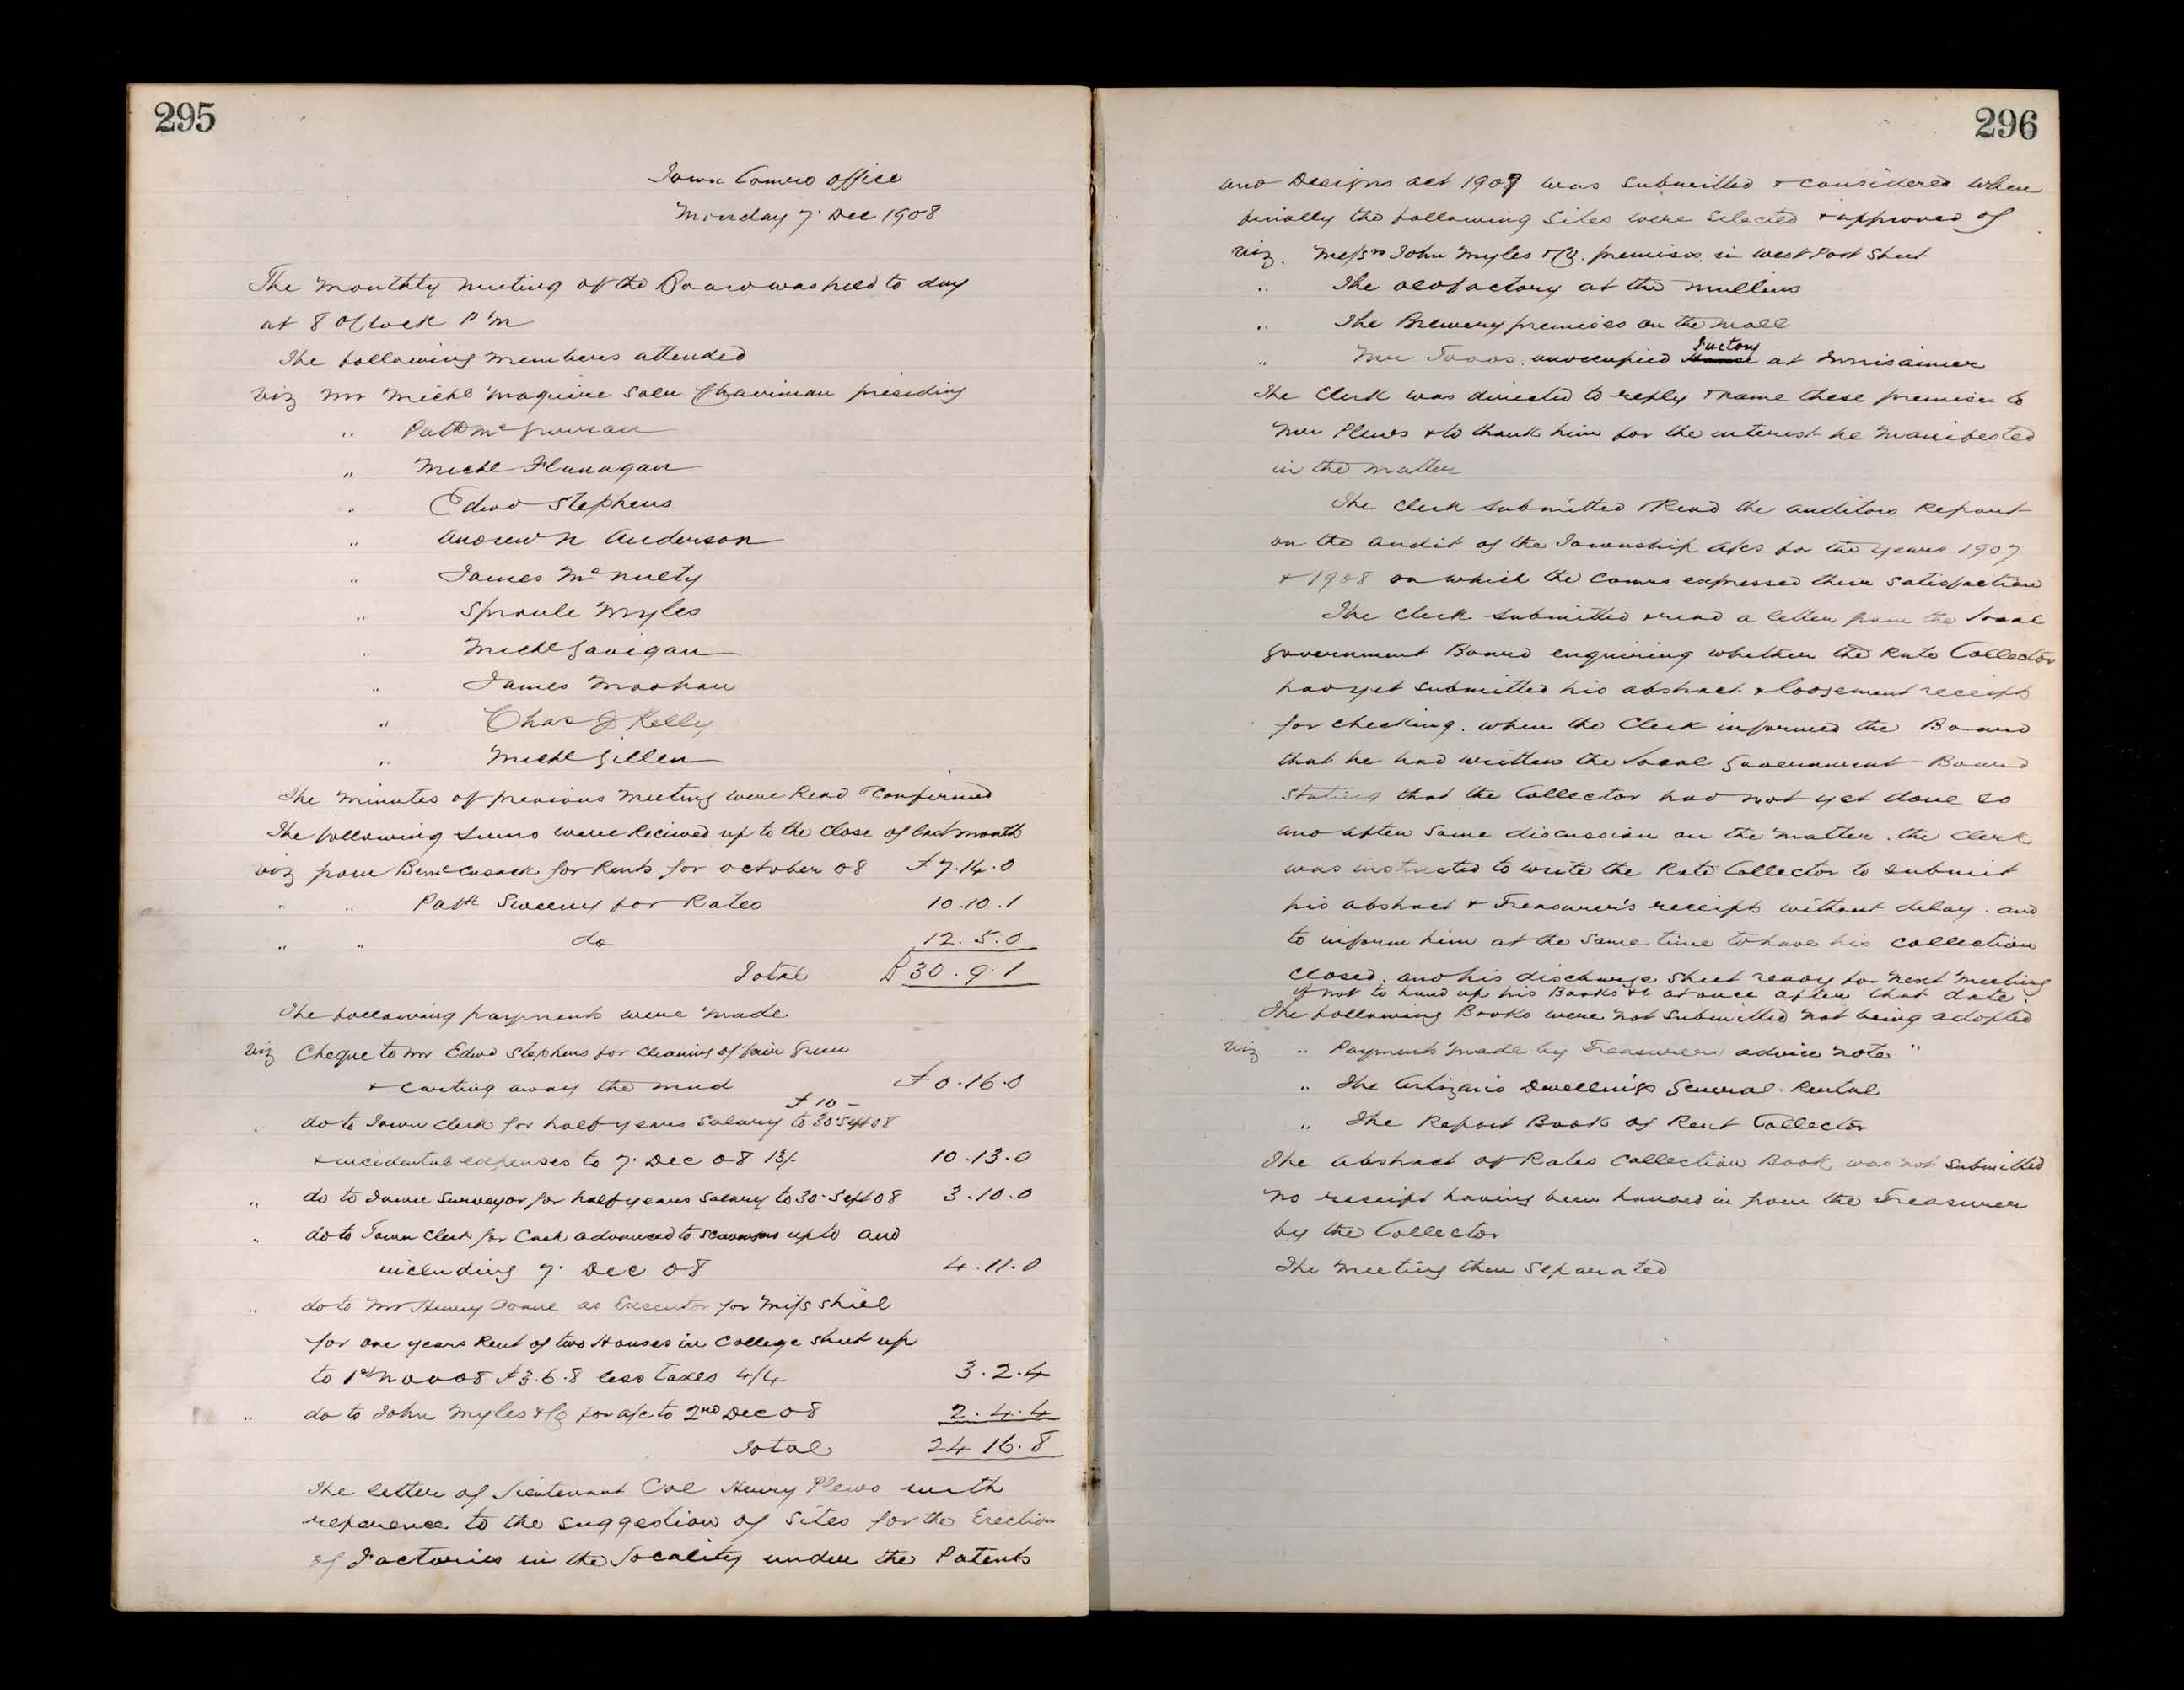 295
Town Comrs office
Monday 7. Dec 1908
The Monthly meeting of the Board was held to day
at 8 OClock P M
The following Members attended
Viz Mr Michl Maguire Solr Chairman presiding
" Patk Mc Gurran
" Michl Flanagan
" Edwd Stephens
" Andrew N Anderson
" James McNulty
" Sproule Myles
" Michl Gavigan
" James Moohan
" Chas J Kelly
" Michl Gillen
The Minutes of previous Meeting were Read & Confirmed
The following Sums were Received up to the Close of last month
viz from Bernd Cusack for Rents for October 08 £7.14.0
" " Patk Sweeny for Rates 10.10.1
" " do 12.5.0
Total £30.9.1
The following payments were made
Viz Cheque to Mr Edwd Stephens for cleaning of fair Green
& carting away the mud £0.16.0
£10 –
do to Town Clerk for half years Salary to 30 Sept 08
& incidental expenses to 7. Dec 08 13/- 10.13.0
" do to Town Surveyor for half years Salary to 30 Sept 08 3.10.0
" do to Town Clerk for Cash advanced to scavengers up to and
including 7. Dec 08 4.11.0
" do to Mr Henry as Executor for Miss Shiel
for one years Rent of two Houses in College Street up
to 1st Nov 08 £3.6.8 less taxes 4/4 3.2.4
" do to John Myles & Co for a/c to 2nd Dec 08 2.4.4
Total 24 16.8
The letter of Lieutenant Col Henry Plews with
reference to the suggestion of Sites for the Erection
of Factories in the Locality under the Patents
296
and Designs act 1907 was submitted & considered when
finally the following Sites were selected & approved of
Viz. Messrs John Myles & Co. premises in West Port Street
" The old factory at the Mullins
" The Brewery premises on the Mall
" Mr unoccupied Factory at
The Clerk was directed to reply & name these premises to
Mr Plews & to thank him for the interest he manifested
in the matter
The Clerk submitted & Read the auditors Report
on the audit of the Township a/cs for the years 1907
& 1908 on which the Comrs expressed their satisfaction
The Clerk submitted & read a letter from the Local
Government Board enquiring whether the Rate Collector
had yet submitted his abstract & lodgement receipts
for checking. when the Clerk informed the Board
that he had written the Local Government Board
stating that the Collector had not yet done so
and after some discussion on the matter. the Clerk
was instructed to write the Rate Collector to submit
his abstract & Treasurer's receipts without delay. and
to inform him at the same time to have his collection
closed. and his discharge sheet ready for next meeting
if not to hand up his Books &c at once after that date.
The following Books were not submitted not being adopted
Viz " Payments made by Treasurers advice note "
" The Artizans Dwellings General Rental
" The Report Book of Rent Collector
The abstract of Rates Collection Book was not submitted
no receipt having been handed in from the Treasurer
by the Collector
The Meeting then Separated